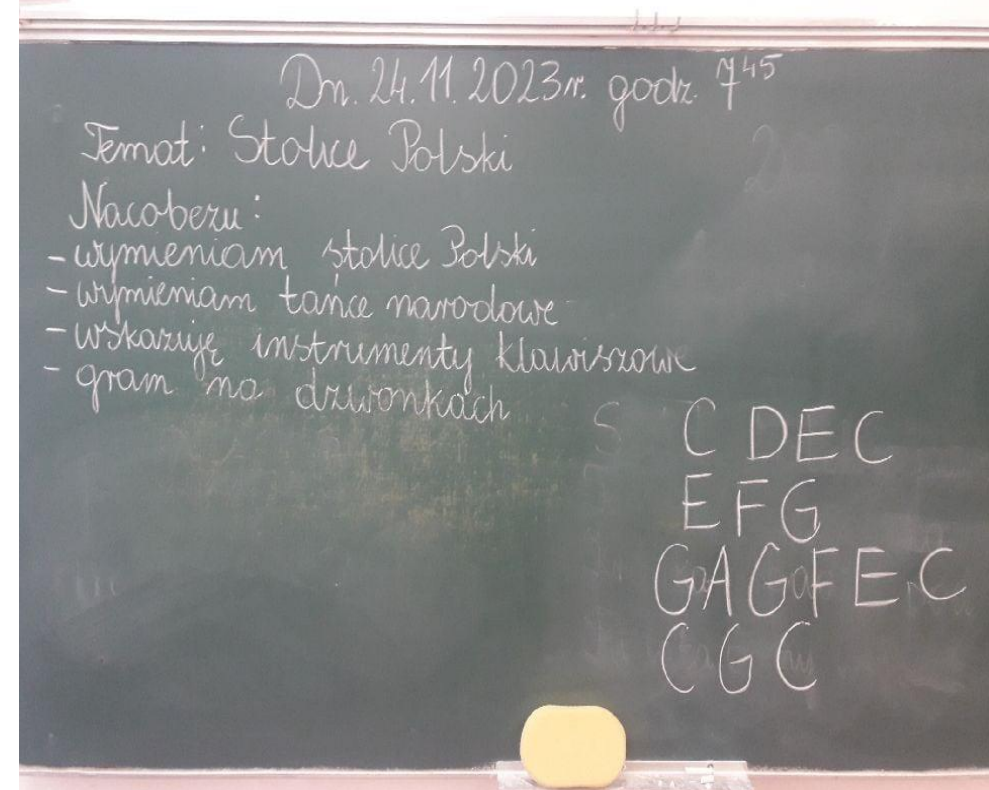 Dn. 24.11.2023r. godz. 7⁴⁵
Temat: Stolice Polski
Nacobezu:
- wymieniam stolice Polski
- wymieniam tańce narodowe
- wskazuję instrumenty klawiszowe
- gram na dzwonkach
C D E C
E F G
G A G F E C
C G C